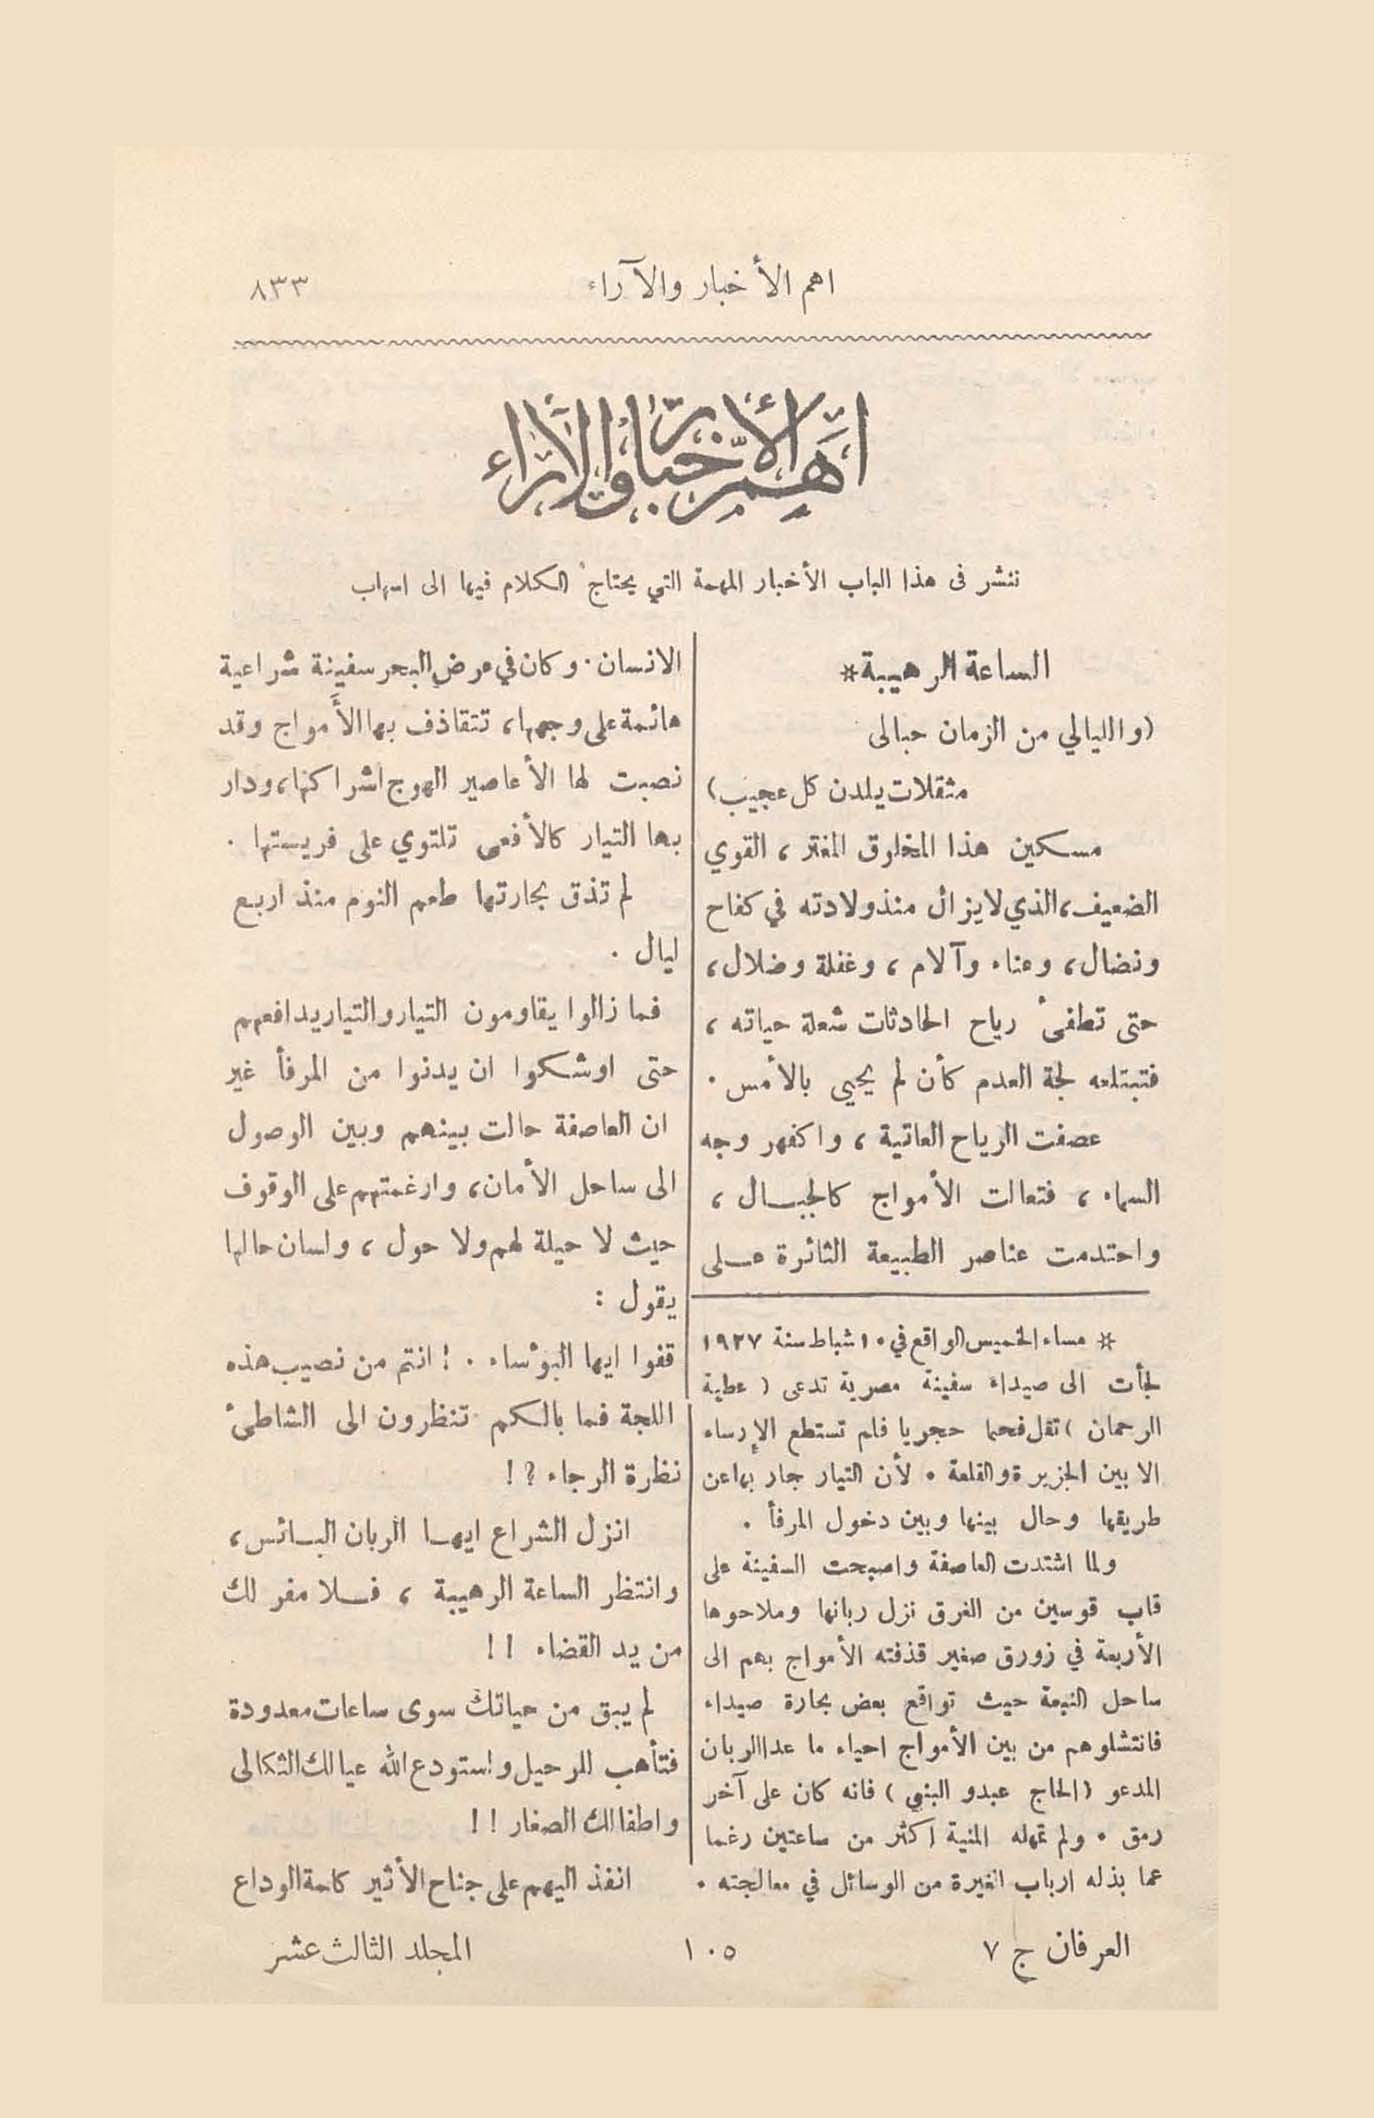 اهم الأخبار والآراء
٨٣٣
اهم الأخبار والآراء
ننشر فى هذا الباب الأخبار المهمة التي يحتاج الكلام فيها الى اسهاب
الساعة الرهيبة*
(والليالي من الزمان حبالى
مثقلات يلدن كل عجيب)
مسكين هذا المخلوق المغتر ، القوي
الضعيف، الذي لا يزال منذ ولادته في كفاح
ونضال، وعناء وآلام ، وغفلة وضلال،
حتى تطفئ رياح الحادثات شعلة حياته ،
فتبتلعه لجة العدم كأن لم يحيى بالأمس .
عصفت الرياح العاتية ، واكفهر وجه
السماء ، فتعالت الأمواج كالجبال ،
واحتدمت عناصر الطبيعة الثائرة على
* مساء الخميس الواقع في ١٠ شباط سنة ١٩٢٧
لجأت الى صيداء سفينة مصرية تدعى ( عطية
الرحمان ) تقل فحما حجريا فلم تستطع الإرساء
الا بين الجزيرة والقلعة . لأن التيار جار بها عن
طريقها وحال بينها وبين دخول المرفأ .
ولما اشتدت العاصفة واصبحت السفينة على
قاب قوسين من الغرق نزل ربانها وملاحوها
الأربعة في زورق صغير قذفته الأمواج بهم الى
ساحل النبعة حيث تواقع بعض بحارة صيداء
فانتشلوهم من بين الأمواج احياء ما عدا الربان
المدعو ( الحاج عبدو البني ) فانه كان على آخر
رمق . ولم تمهله المنية اكثر من ساعتين رغما
عما بذله ارباب الغيرة من الوسائل في معالجته .
الانسان . وكان في عرض البحر سفينة شراعية
هائمة على وجهها، تتقاذف بها الأمواج وقد
نصبت لها الأعاصير الهوج اشراكها، ودار
بها التيار كالأفعى تلتوي على فريستها .
لم تذق بحارتها طعم النوم منذ اربع
ليال .
فما زالوا يقاومون التيار والتيار يدافعهم
حتى اوشكوا ان يدنوا من المرفأ غير
ان العاصفة حالت بينهم وبين الوصول
الى ساحل الأمان، وارغمتهم على الوقوف
حيث لا حيلة لهم ولا حول ، ولسان حالها
يقول :
قفوا ايها البؤساء . ! انتم من نصيب هذه
اللجة فما بالكم تنظرون الى الشاطئ
نظرة الرجاء ? !
انزل الشراع ايها الربان البائس،
وانتظر الساعة الرهيبة ، فلا مفر لك
من يد القضاء ! !
لم يبق من حياتك سوى ساعات معدودة
فتأهب للرحيل واستودع الله عيالك الثكالى
واطفالك الصغار ! !
انفذ اليهم على جناح الأثير كلمة الوداع
العرفان ج ٧
١٠٥
المجلد الثالث عشر